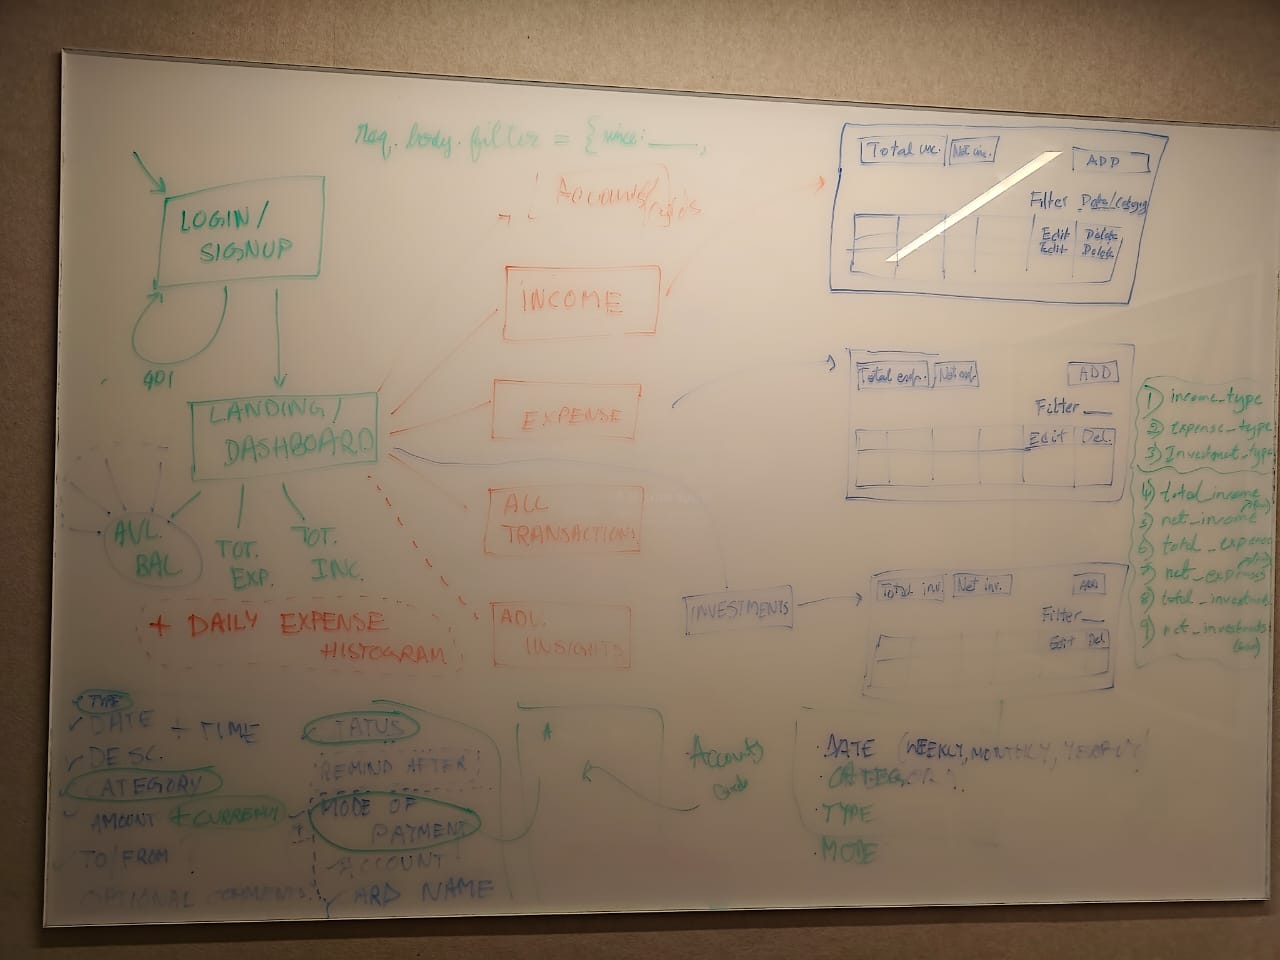 req. body. filter = {
LOGIN/
SIGNUP
401
LANDING/
DASHBOARD
AVL.
BAL.
TOT.
EXP.
TOT.
INC.
+ DAILY EXPENSE
HISTOGRAM
Accounts/
INCOME
EXPENSE
ALL
TRANSACTIONS
INSIGHTS
INVESTMENTS
Total inc. Net inc. ADD
Filter Date/Category
Edit Delete
Edit Delete
Total exp. Net exp. ADD
Filter
Edit Del.
Total inv. Net inv. ADD
Filter
Edit Del.
1) income_type
2) expense_type
3) Investment_type
4) total_income
5) net_income
6) total_expense
7) net_expenses
8) total_investment
9) net_investments
TYPE
DATE + TIME
DESC.
CATEGORY
AMOUNT + CURRENCY
TO/FROM
OPTIONAL COMMENTS
STATUS
REMIND AFTER
MODE OF
PAYMENT
ACCOUNT
CARD NAME
A
Accounts
DATE (WEEKLY, MONTHLY, YEARLY)
CATEGORY
TYPE
MODE